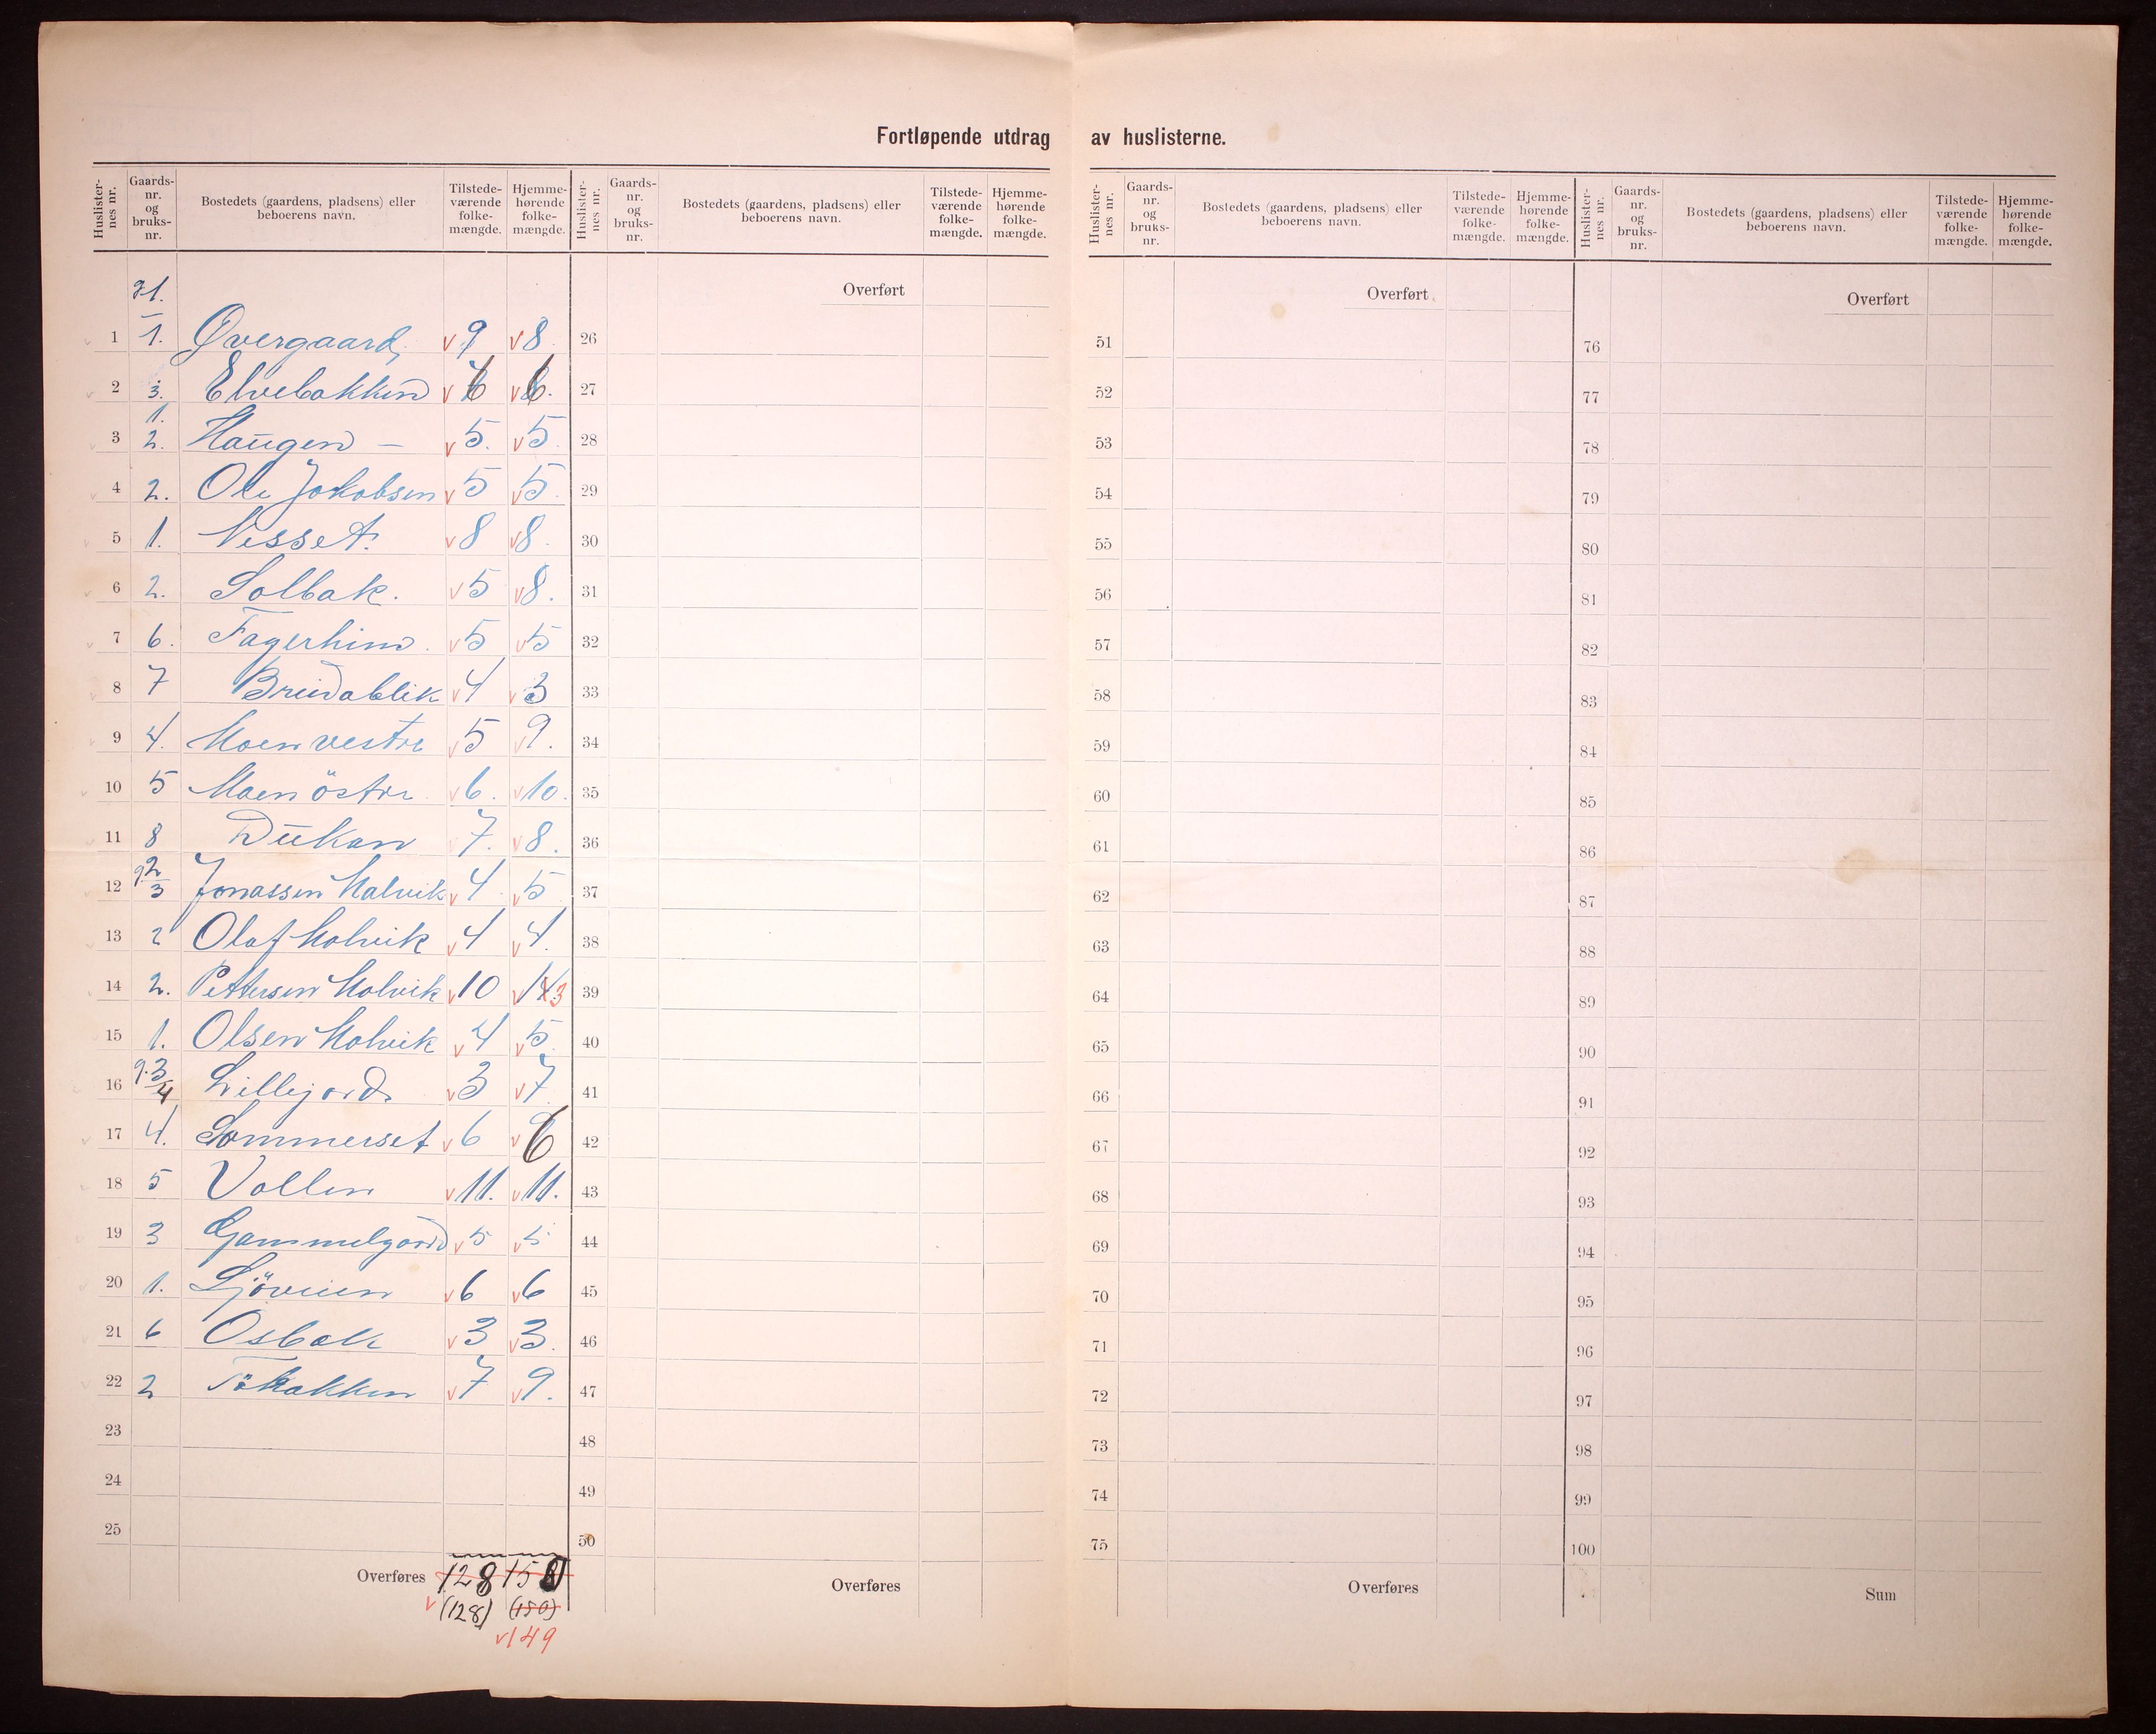 Fortløpende utdrag av huslisterne.
Huslister-nes nr. Gaards-nr. og bruks-nr. Bostedets (gaardens, pladsens) eller beboerens navn. Tilstede-værende folke-mængde. Hjemme-hørende folke-mængde.
Huslister-nes nr. Gaards-nr. og bruks-nr. Bostedets (gaardens, pladsens) eller beboerens navn. Tilstede-værende folke-mængde. Hjemme-hørende folke-mængde.
Huslister-nes nr. Gaards-nr. og bruks-nr. Bostedets (gaardens, pladsens) eller beboerens navn. Tilstede-værende folke-mængde. Hjemme-hørende folke-mængde.
Huslister-nes nr. Gaards-nr. og bruks-nr. Bostedets (gaardens, pladsens) eller beboerens navn. Tilstede-værende folke-mængde. Hjemme-hørende folke-mængde.
g1. Overført Overført Overført
1 1. Øvergaard v 9 v 8. 26 51 76
2 3. Elvebakken v 6 v 6. 27 52 77
1.
3 2. Haugen — v 5. v 5. 28 53 78
4 2. Ole Jakobsen v 5 v 5. 29 54 79
5 1. Nesset. v 8 v 8. 30 55 80
6 2. Solbak. v 5 v 8. 31 56 81
7 6. Fagerheim. v 5 v 5 32 57 82
8 7 Breidablik v 4 v 3 33 58 83
9 4. Moen vestre v 5 v 9. 34 59 84
10 5 Moen östre v 6. v 10. 35 60 85
11 8 v 7. v 8. 36 61 86
12 g.2 3 Jonassen Malvik v 4 v 5 37 62 87
13 2 Olaf Malvik v 4 v 4. 38 63 88
14 2. Pettersen Malvik v 10 v 14 3 39 64 89
15 1. Olsen Malvik v 4 v 5. 40 65 90
16 g.3 4 Lillejord v 3 v 7. 41 66 91
17 4. Sommerset v 6 v 6 42 67 92
18 5 Vollen v 11. v 11. 43 68 93
19 3 Gammelgård v 5 v 5 44 69 94
20 1. Sjöveien v 6 v 6 45 70 95
21 6 Osbakk v 3 v 3. 46 71 96
22 2 v 7 v 9. 47 72 97
23 48 73 98
24 49 74 99
25 50 75 100
Overføres 128 150 Overføres Overføres Sum
v (128) (150)
v 149